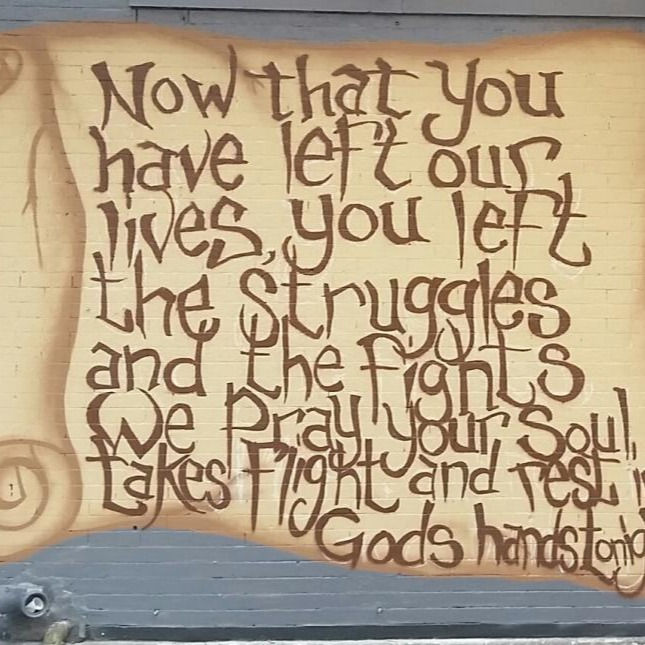 Now that you
have left our
lives, you left
the struggles
and the fights
We Pray your Soul
takes flight and rest
Gods hands